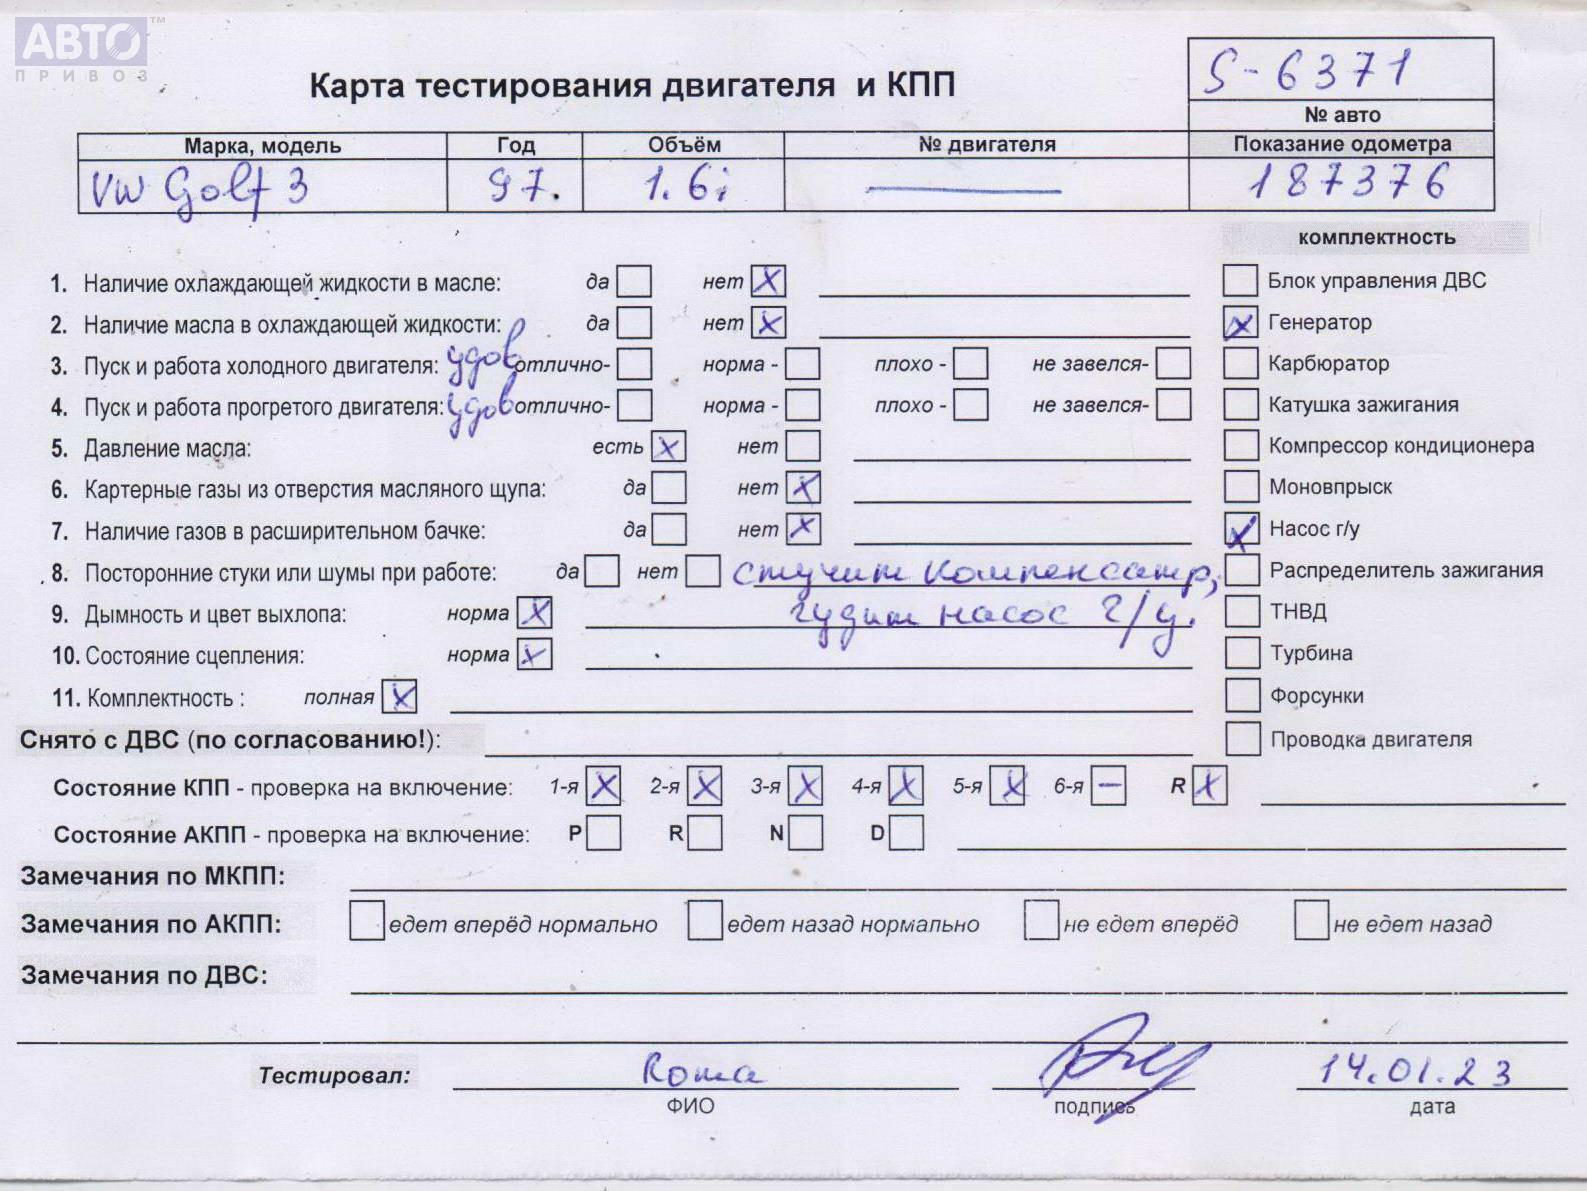 АВТО™
ПРИВОЗ
Карта тестирования двигателя и КПП
S-6371
№ авто
Марка, модель Год Объём № двигателя Показание одометра
VW Golf 3 97. 1.6i 187376
комплектность
1. Наличие охлаждающей жидкости в масле: да нет X Блок управления ДВС
2. Наличие масла в охлаждающей жидкости: да нет X X Генератор
3. Пуск и работа холодного двигателя: удов отлично- норма - плохо - не завелся- Карбюратор
4. Пуск и работа прогретого двигателя: удов отлично- норма - плохо - не завелся- Катушка зажигания
5. Давление масла: есть X нет Компрессор кондиционера
6. Картерные газы из отверстия масляного щупа: да нет X Моновпрыск
7. Наличие газов в расширительном бачке: да нет X X Насос г/у
8. Посторонние стуки или шумы при работе: да нет стучит компенсатр, Распределитель зажигания
9. Дымность и цвет выхлопа: норма X гудит насос г/у. ТНВД
10. Состояние сцепления: норма X Турбина
11. Комплектность : полная X Форсунки
Снято с ДВС (по согласованию!): Проводка двигателя
Состояние КПП - проверка на включение: 1-я X 2-я X 3-я X 4-я X 5-я X 6-я — R X
Состояние АКПП - проверка на включение: P R N D
Замечания по МКПП:
Замечания по АКПП: едет вперёд нормально едет назад нормально не едет вперёд не едет назад
Замечания по ДВС:
Тестировал: Roma 14.01.23
ФИО подпись дата